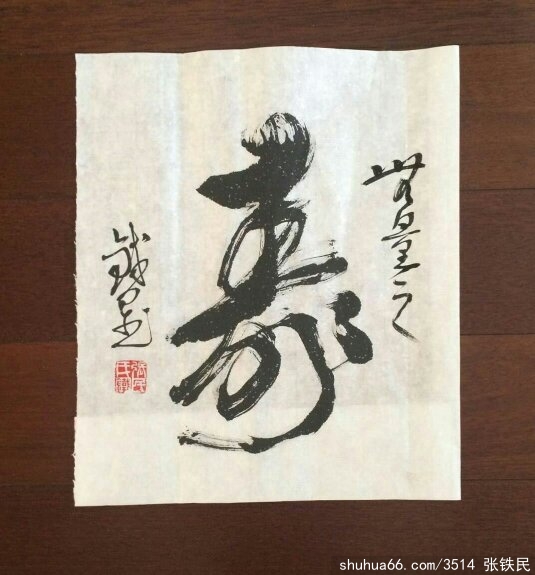 無量之
寿
shuhua66.com/3514 张铁民